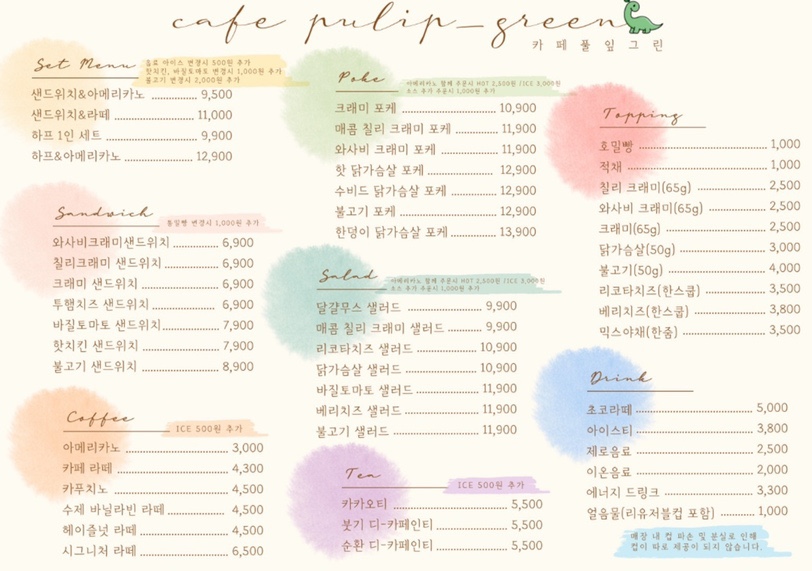 cafe pulip_green
카페풀잎그린
Set Menu
음료 아이스 변경시 500원 추가
핫치킨, 바질토마토 변경시 1,000원 추가
불고기 변경시 2,000원 추가
샌드위치&아메리카노 9,500
샌드위치&라떼 11,000
하프 1인 세트 9,900
하프&아메리카노 12,900
Sandwich
통밀빵 변경시 1,000원 추가
와사비크래미샌드위치 6,900
칠리크래미 샌드위치 6,900
크래미 샌드위치 6,900
투햄치즈 샌드위치 6,900
바질토마토 샌드위치 7,900
핫치킨 샌드위치 7,900
불고기 샌드위치 8,900
Coffee
ICE 500원 추가
아메리카노 3,000
카페 라떼 4,300
카푸치노 4,500
수제 바닐라빈 라떼 4,500
헤이즐넛 라떼 4,500
시그니처 라떼 6,500
Poke
아메리카노 함께 주문시 HOT 2,500원 /ICE 3,000원
소스 추가 주문시 1,000원 추가
크래미 포케 10,900
매콤 칠리 크래미 포케 11,900
와사비 크래미 포케 11,900
핫 닭가슴살 포케 12,900
수비드 닭가슴살 포케 12,900
불고기 포케 12,900
한덩이 닭가슴살 포케 13,900
Salad
아메리카노 함께 주문시 HOT 2,500원 /ICE 3,000원
소스 추가 주문시 1,000원 추가
달걀무스 샐러드 9,900
매콤 칠리 크래미 샐러드 9,900
리코타치즈 샐러드 10,900
닭가슴살 샐러드 10,900
바질토마토 샐러드 11,900
베리치즈 샐러드 11,900
불고기 샐러드 11,900
Tea
ICE 500원 추가
카카오티 5,500
붓기 디-카페인티 5,500
순환 디-카페인티 5,500
Topping
호밀빵 1,000
적채 1,000
칠리 크래미(65g) 2,500
와사비 크래미(65g) 2,500
크래미(65g) 2,500
닭가슴살(50g) 3,000
불고기(50g) 4,000
리코타치즈(한스쿱) 3,500
베리치즈(한스쿱) 3,800
믹스야채(한줌) 3,500
Drink
초코라떼 5,000
아이스티 3,800
제로음료 2,500
이온음료 2,000
에너지 드링크 3,300
얼음물(리유저블컵 포함) 1,000
매장 내 컵 파손 및 분실로 인해
컵이 따로 제공이 되지 않습니다.